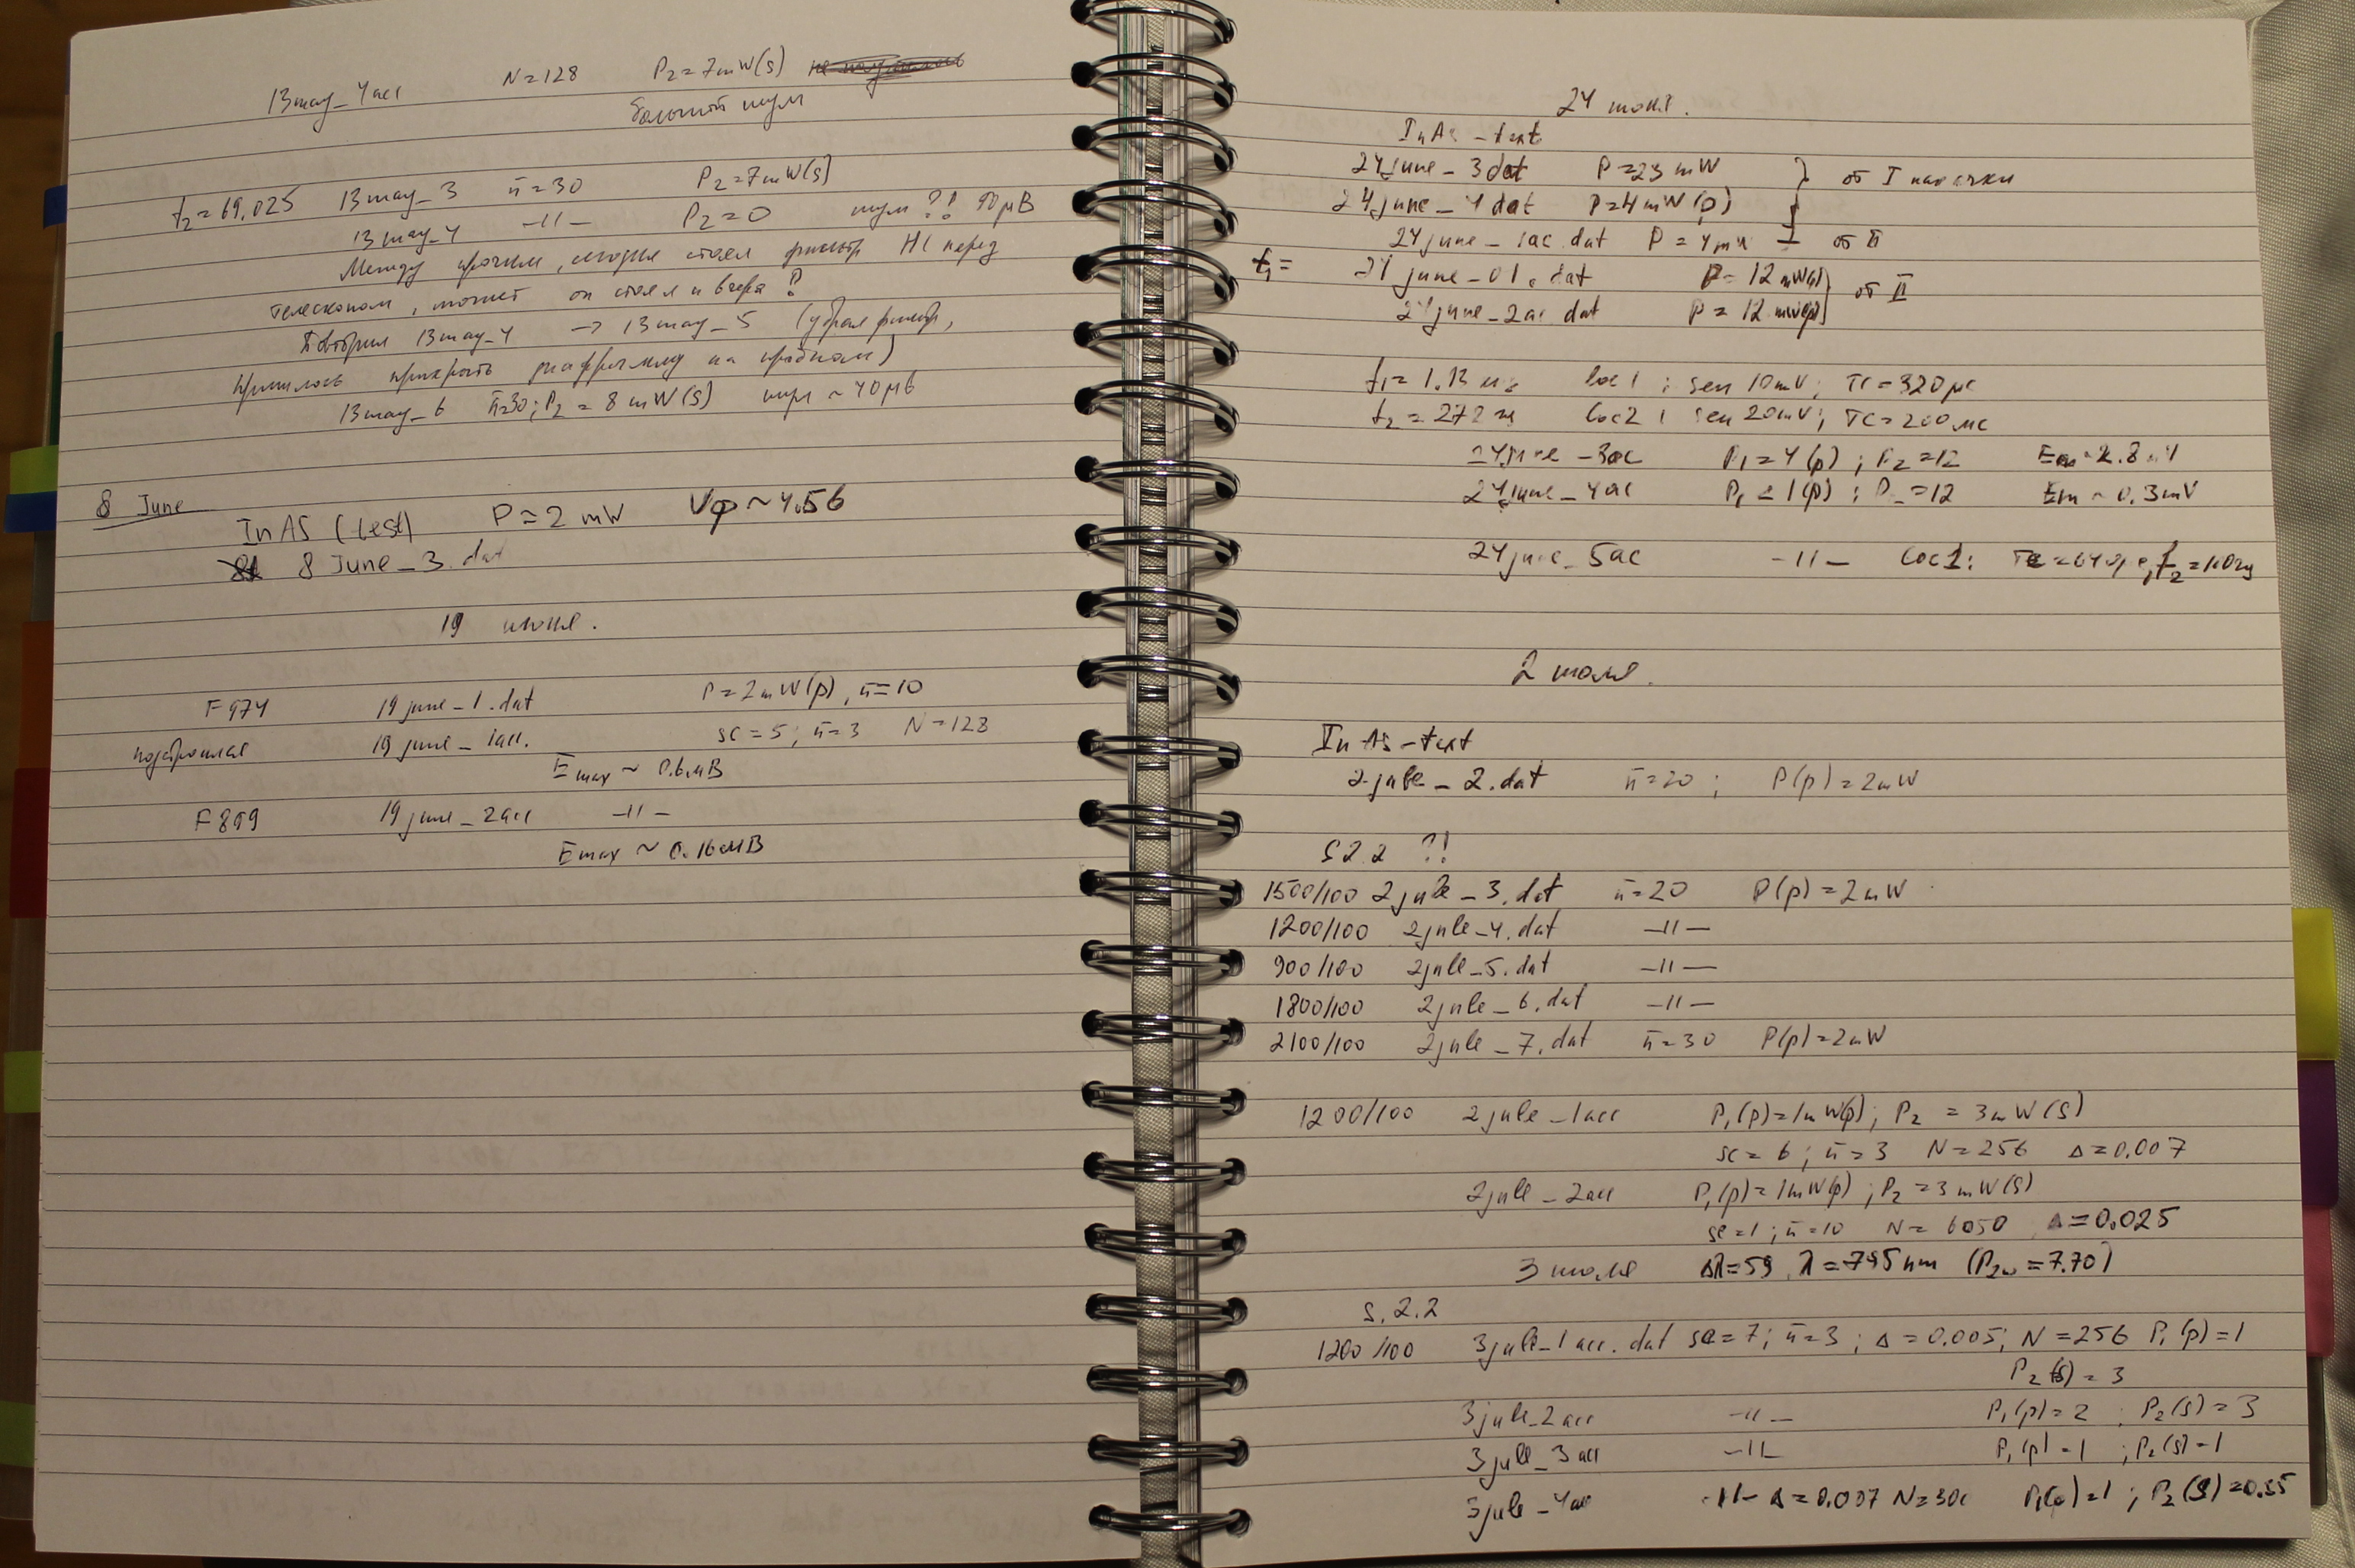 13may_4acc N=128 P₂=7mW(s)
большой шум
f₂=69.025 13may_3 n̄=30 P₂=7mW(s)
13may_4 -11- P₂=0 шум ?! 90μВ
Между прочим, сегодня стоял фильтр НС перед
телескопом, может он стоял и вчера?
Повторил 13may_4 → 13may_5 (убрал фильтр,
пришлось прикрыть диафрагму на пробном)
13may_6 n̄=30; P₂=8mW(s) шум ~40μВ
8 June
InAs (test) P=2 mW Vφ~4.56
8 June_3.dat
19 июня.
F974 19june_1.dat P=2mW(p), n̄=10
подстроился 19june_1acc. sc=5; n̄=3 N=128
Emax ~ 0.6мВ
F899 19june_2acc -11-
Emax ~ 0.16мВ
24 июня.
InAs-text
24june_3dat P=23mW } от I накачки
24june_4dat P=4mW(p)
24june_1ac.dat P=4mW от II
f₁= 24june_01.dat P=12mW(p) } от II
24june_2ac.dat P=12mW(p)
f₁=1.13 loc1: sen 10mV; TC=320μс
f₂=272 loc2: sen 20mV; TC=200
24june_3ac P₁=4(p); P₂=12
24june_4ac P₁=1(p); P₂=12 Em~0.3mV
24june_5ac -11- loc1:
2 июля.
InAs-text
2jule_2.dat n̄=20; P(p)=2mW
S2.2 ?!
1500/100 2jule_3.dat n̄=20 P(p)=2mW
1200/100 2jule_4.dat -11-
900/100 2jule_5.dat -11-
1800/100 2jule_6.dat -11-
2100/100 2jule_7.dat n̄=30 P(p)=2mW
1200/100 2jule_1acc P₁(p)=1mW(p); P₂=3mW(s)
sc=6; n̄=3 N=256 Δ=0.007
2jule_2acc P₁(p)=1mW(p); P₂=3mW(s)
sc=1; n̄=10 N=6050 Δ=0.025
3 июля Δλ=59 λ=795nm (P₂ω=7.70)
S.2.2
1200/100 3jule_1acc.dat sc=7; n̄=3; Δ=0.005; N=256 P₁(p)=1
P₂(s)=3
3jule_2acc -11- P₁(p)=2; P₂(s)=3
3jule_3acc -11- P₁(p)=1; P₂(s)=1
3jule_4ac -11- Δ=0.007 N=300 P₁(p)=1; P₂(s)=0.35